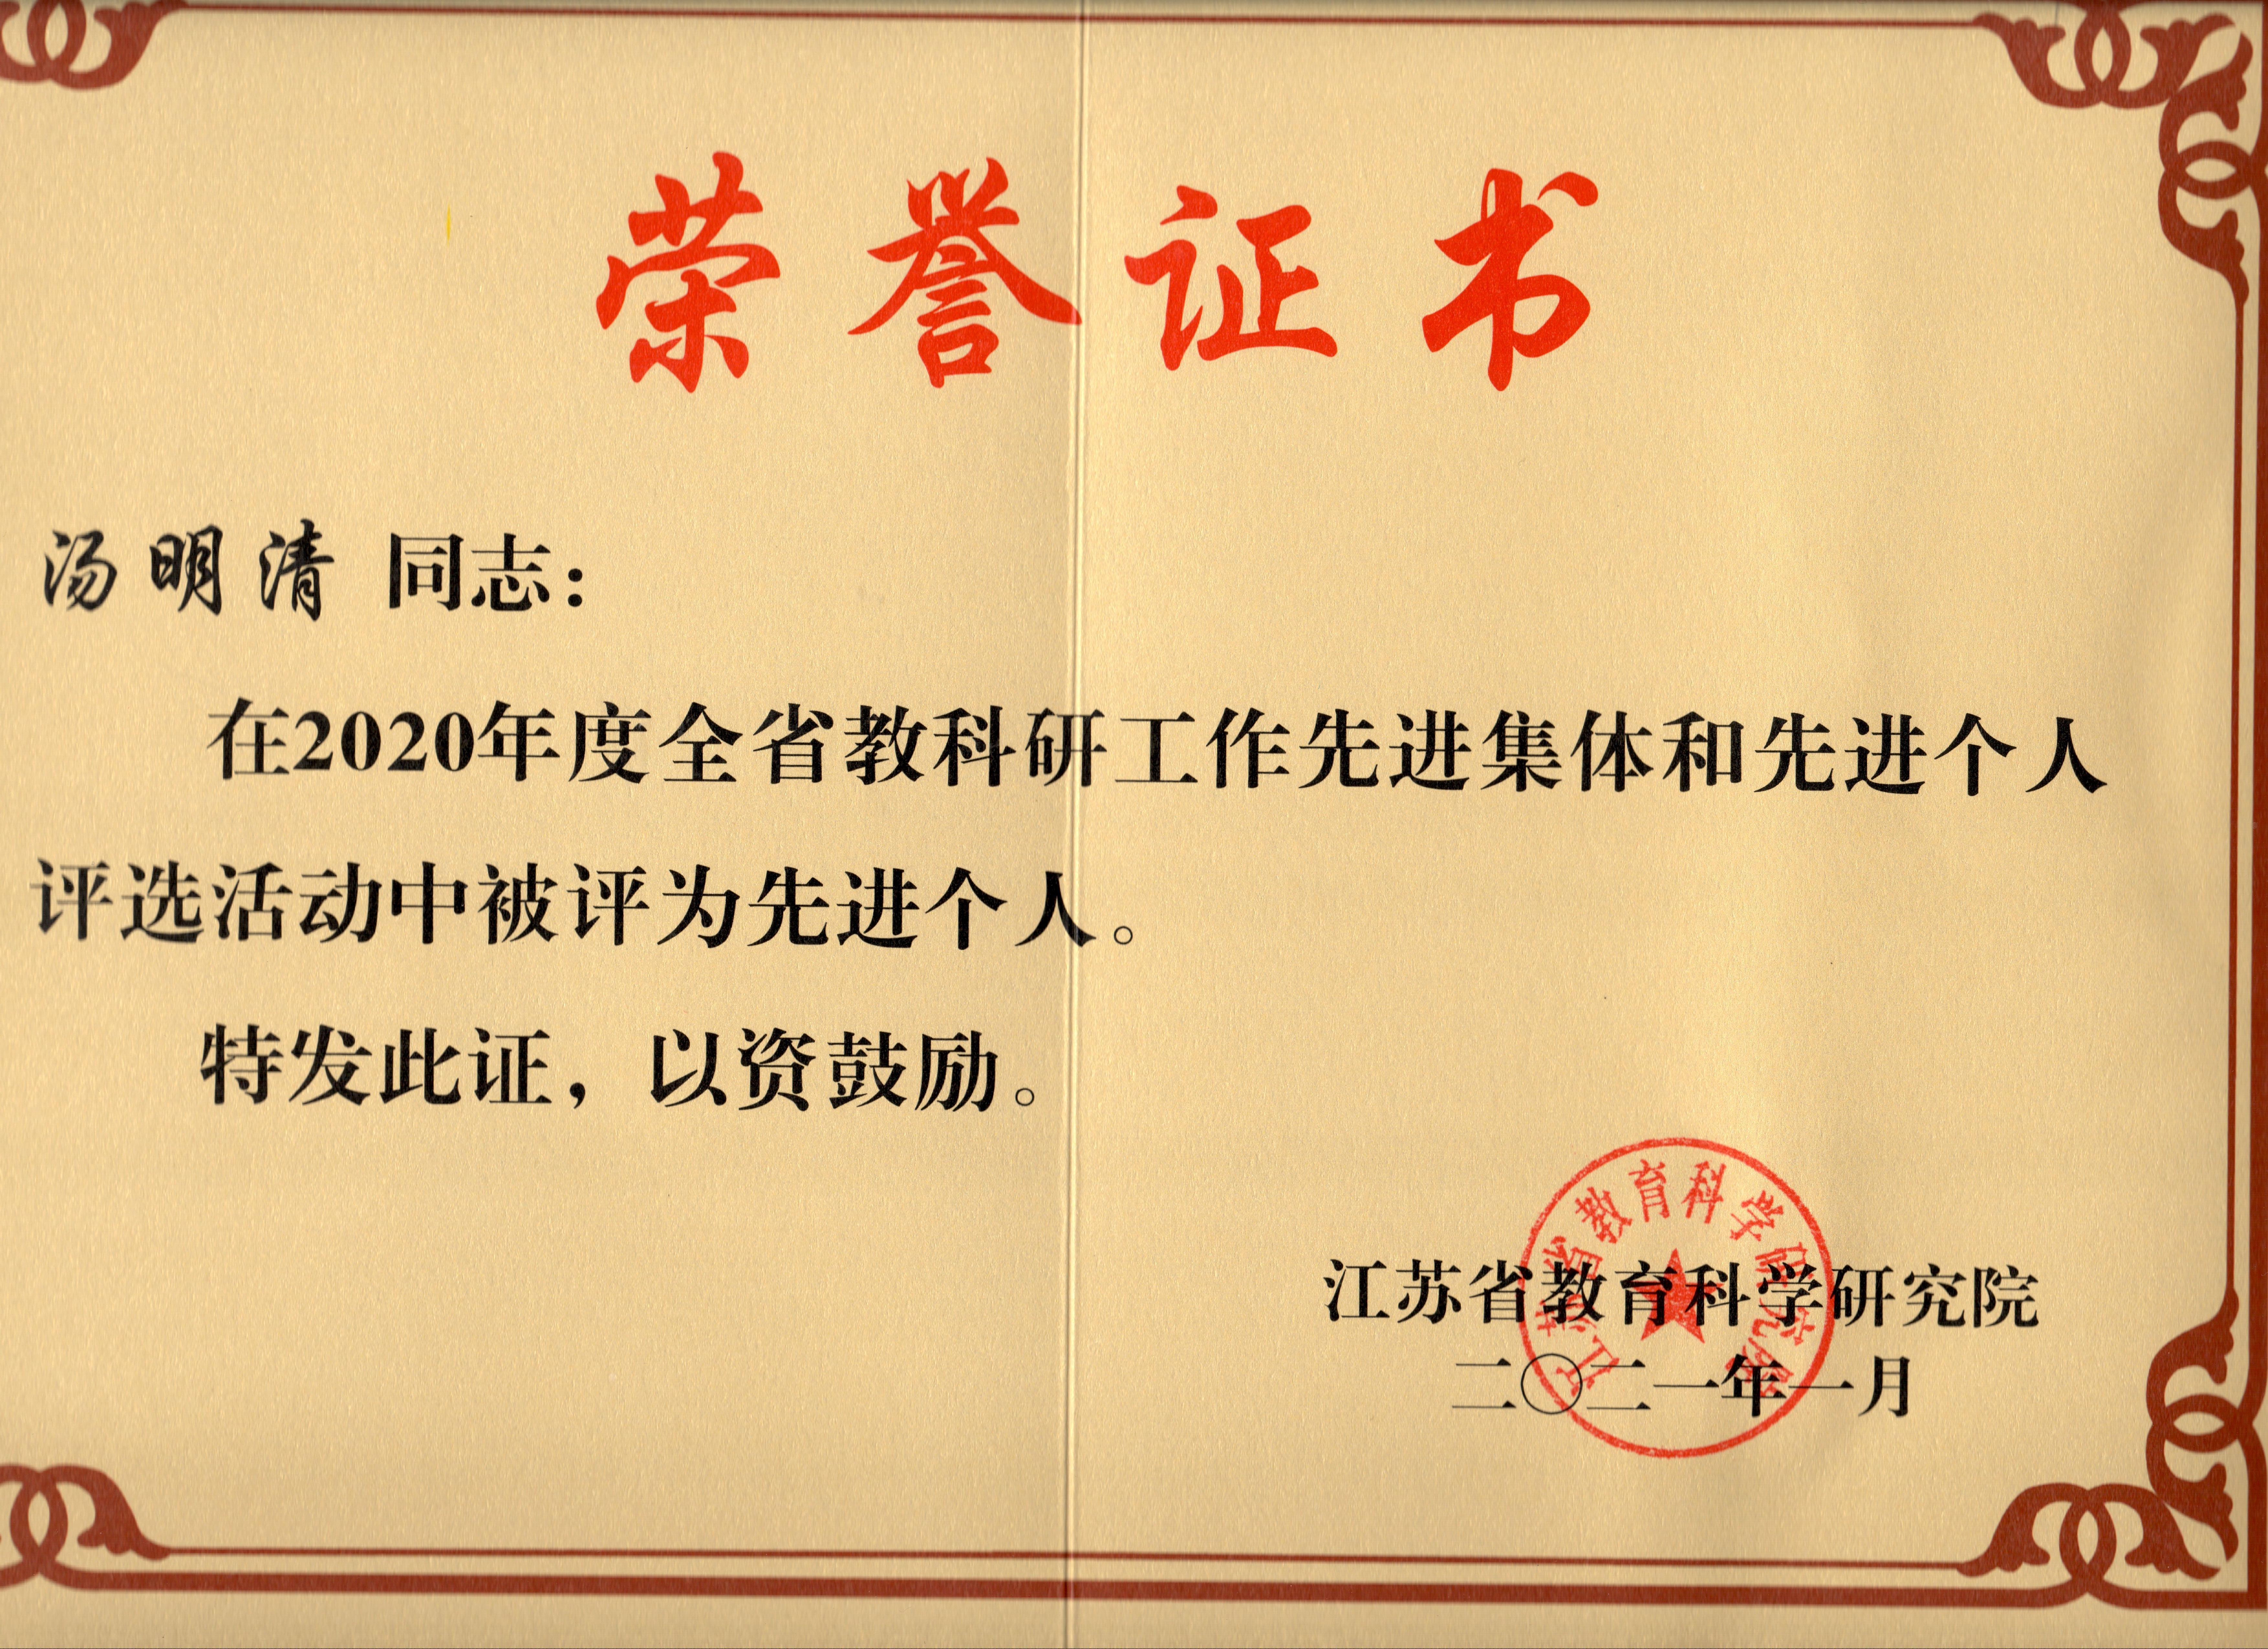 荣誉证书
汤明清 同志：
在2020年度全省教科研工作先进集体和先进个人
评选活动中被评为先进个人。
特发此证，以资鼓励。
江苏省教育科学研究院
江苏省教育科学研究院
二〇二一年一月